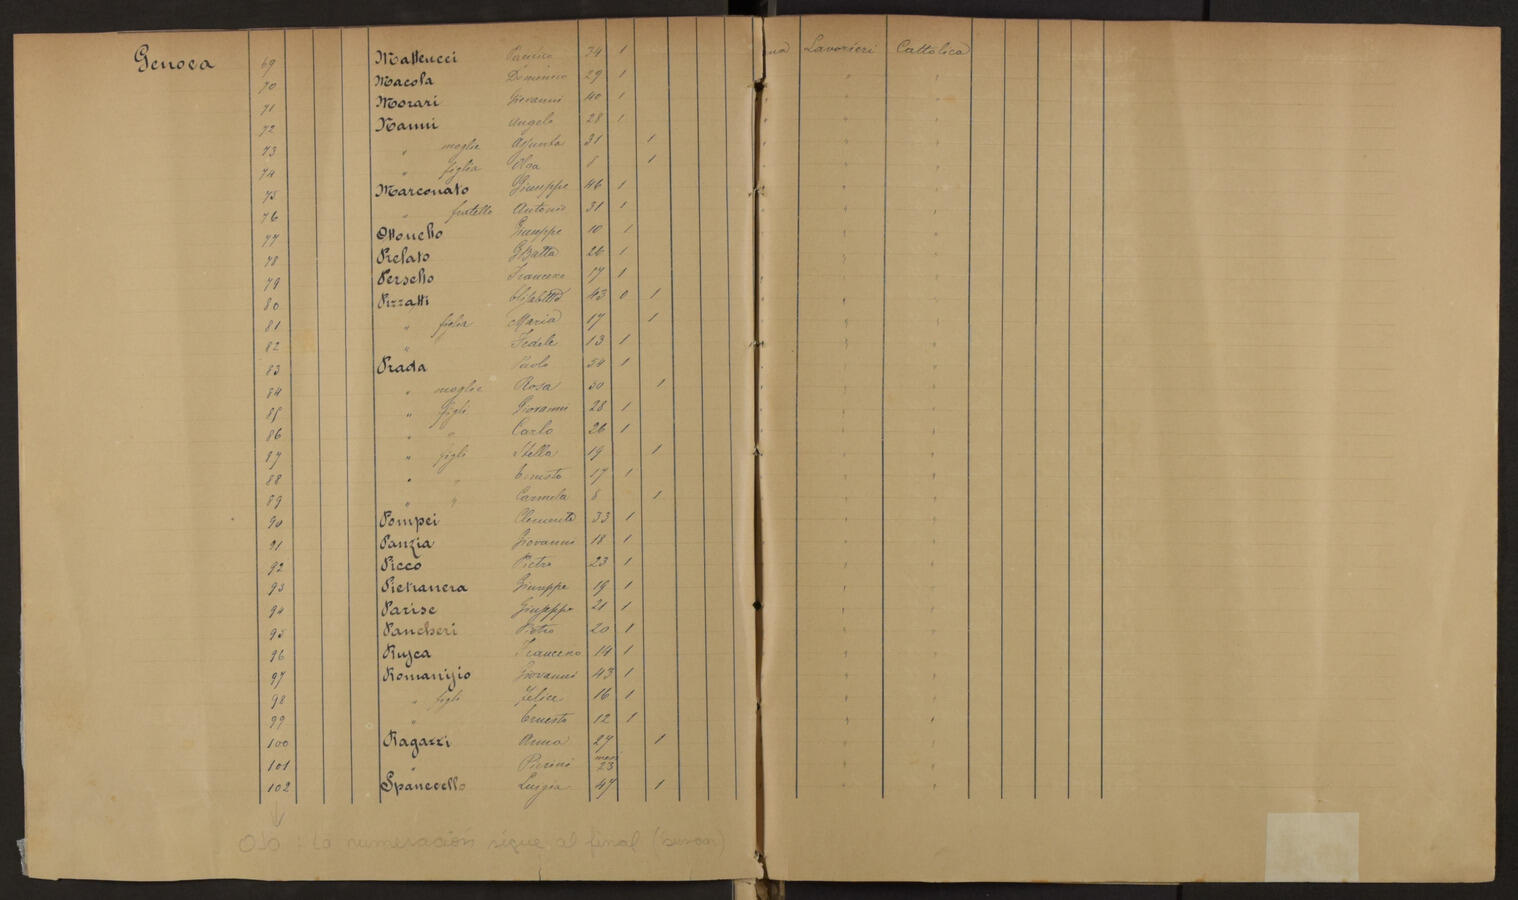 Genova 69 Matteucci 34 1 Lavorieri Cattolica
70 Macola Domenico 29 1 " "
71 Morari Giovanni 40 1 " "
72 Nanni Angelo 28 1 " "
73 " moglie Assunta 31 1 " "
74 " figlia 8 1 " "
75 Marconato Giuseppe 46 1 " "
76 " fratello Antonio 31 1 " "
77 Ottonello Giuseppe 10 1 " "
78 Prelato GBatta 26 1 " "
79 Persello Francesco 17 1 " "
80 Pizzatti Elisabetta 43 0 1 " "
81 " figlia Maria 17 1 " "
82 " Fedele 13 1 " "
83 Prada Paolo 54 1 " "
84 " moglie Rosa 50 1 " "
85 " figli Giovanni 28 1 " "
86 " " Carlo 26 1 " "
87 " figli Stella 19 1 " "
88 " " Ernesto 17 1 " "
89 " " Carmela 8 1 " "
90 Pompei Clemente 33 1 " "
91 Panzia Giovanni 18 1 " "
92 Picco Pietro 23 1 " "
93 Pietranera Giuseppe 19 1 " "
94 Parise Giuseppe 21 1 " "
95 Pancheri Pietro 20 1 " "
96 Rusca Francesco 14 1 " "
97 Romanisio Giovanni 43 1 " "
98 " figli Felice 16 1 " "
99 " Ernesto 12 1 " "
100 Ragazzi Anna 27 1 " "
101 " mesi 23 " "
102 Spanevello Luigia 47 1 " "
OJO : La numeración sigue al final (buscar)